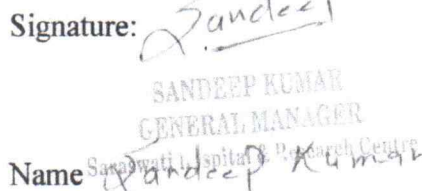 Signature: Sandeep
SANDEEP KUMAR
GENERAL MANAGER
Saraswati Hospital & Research Centre
Name Sandeep Kumar